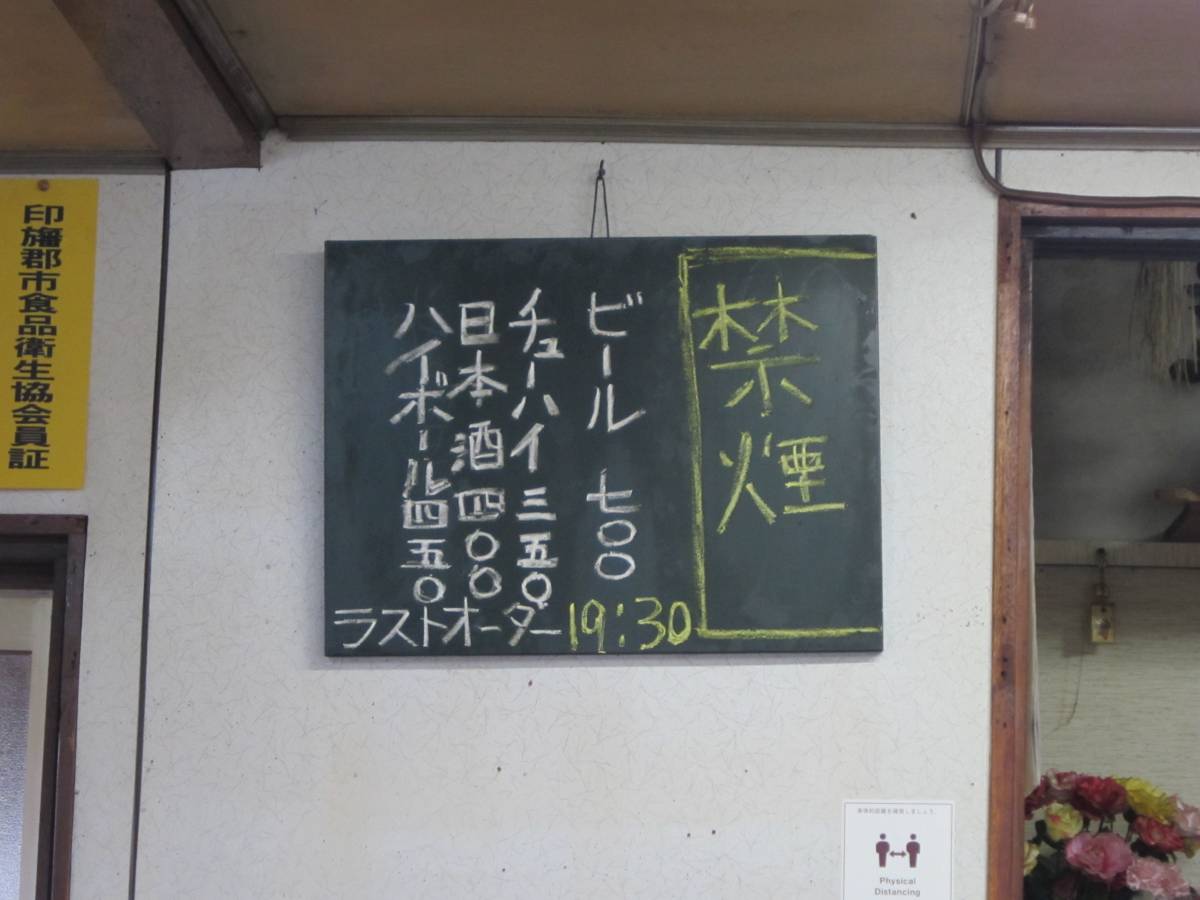 禁煙
ビール 七〇〇
チューハイ 三五〇
日本酒 四〇〇
ハイボール 四五〇
ラストオーダー 19:30
印旛郡市食品衛生協会員証
身体的距離を確保しましょう。
Physical
Distancing